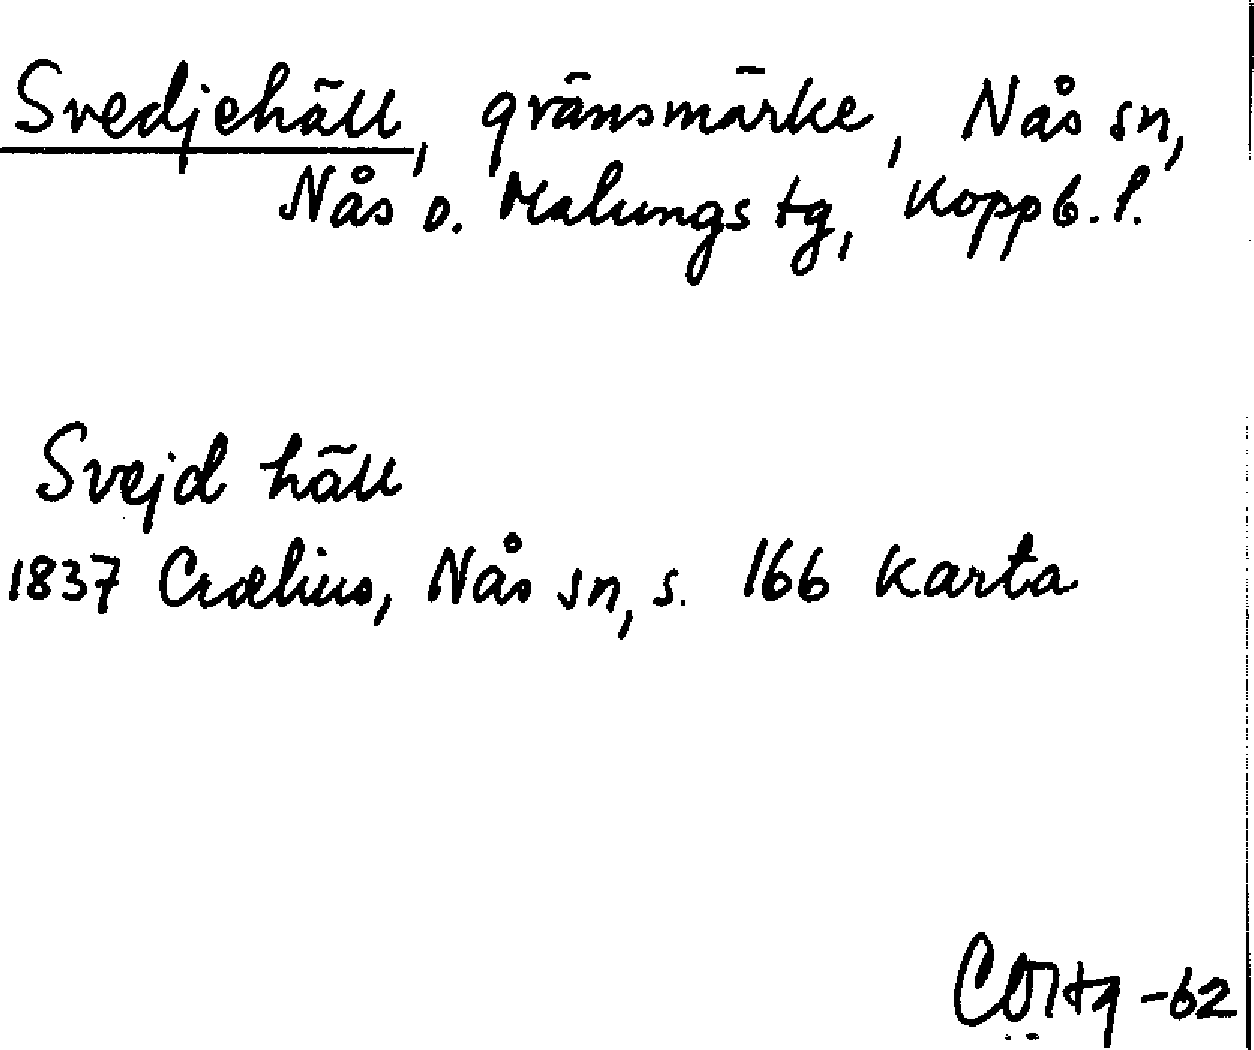 Svedjehäll, gränsmärke, Nås sn,
Nås o. Malungs tg, Koppb. l.
Svejd häll
1837 Crælius, Nås sn, s. 166 karta
-62